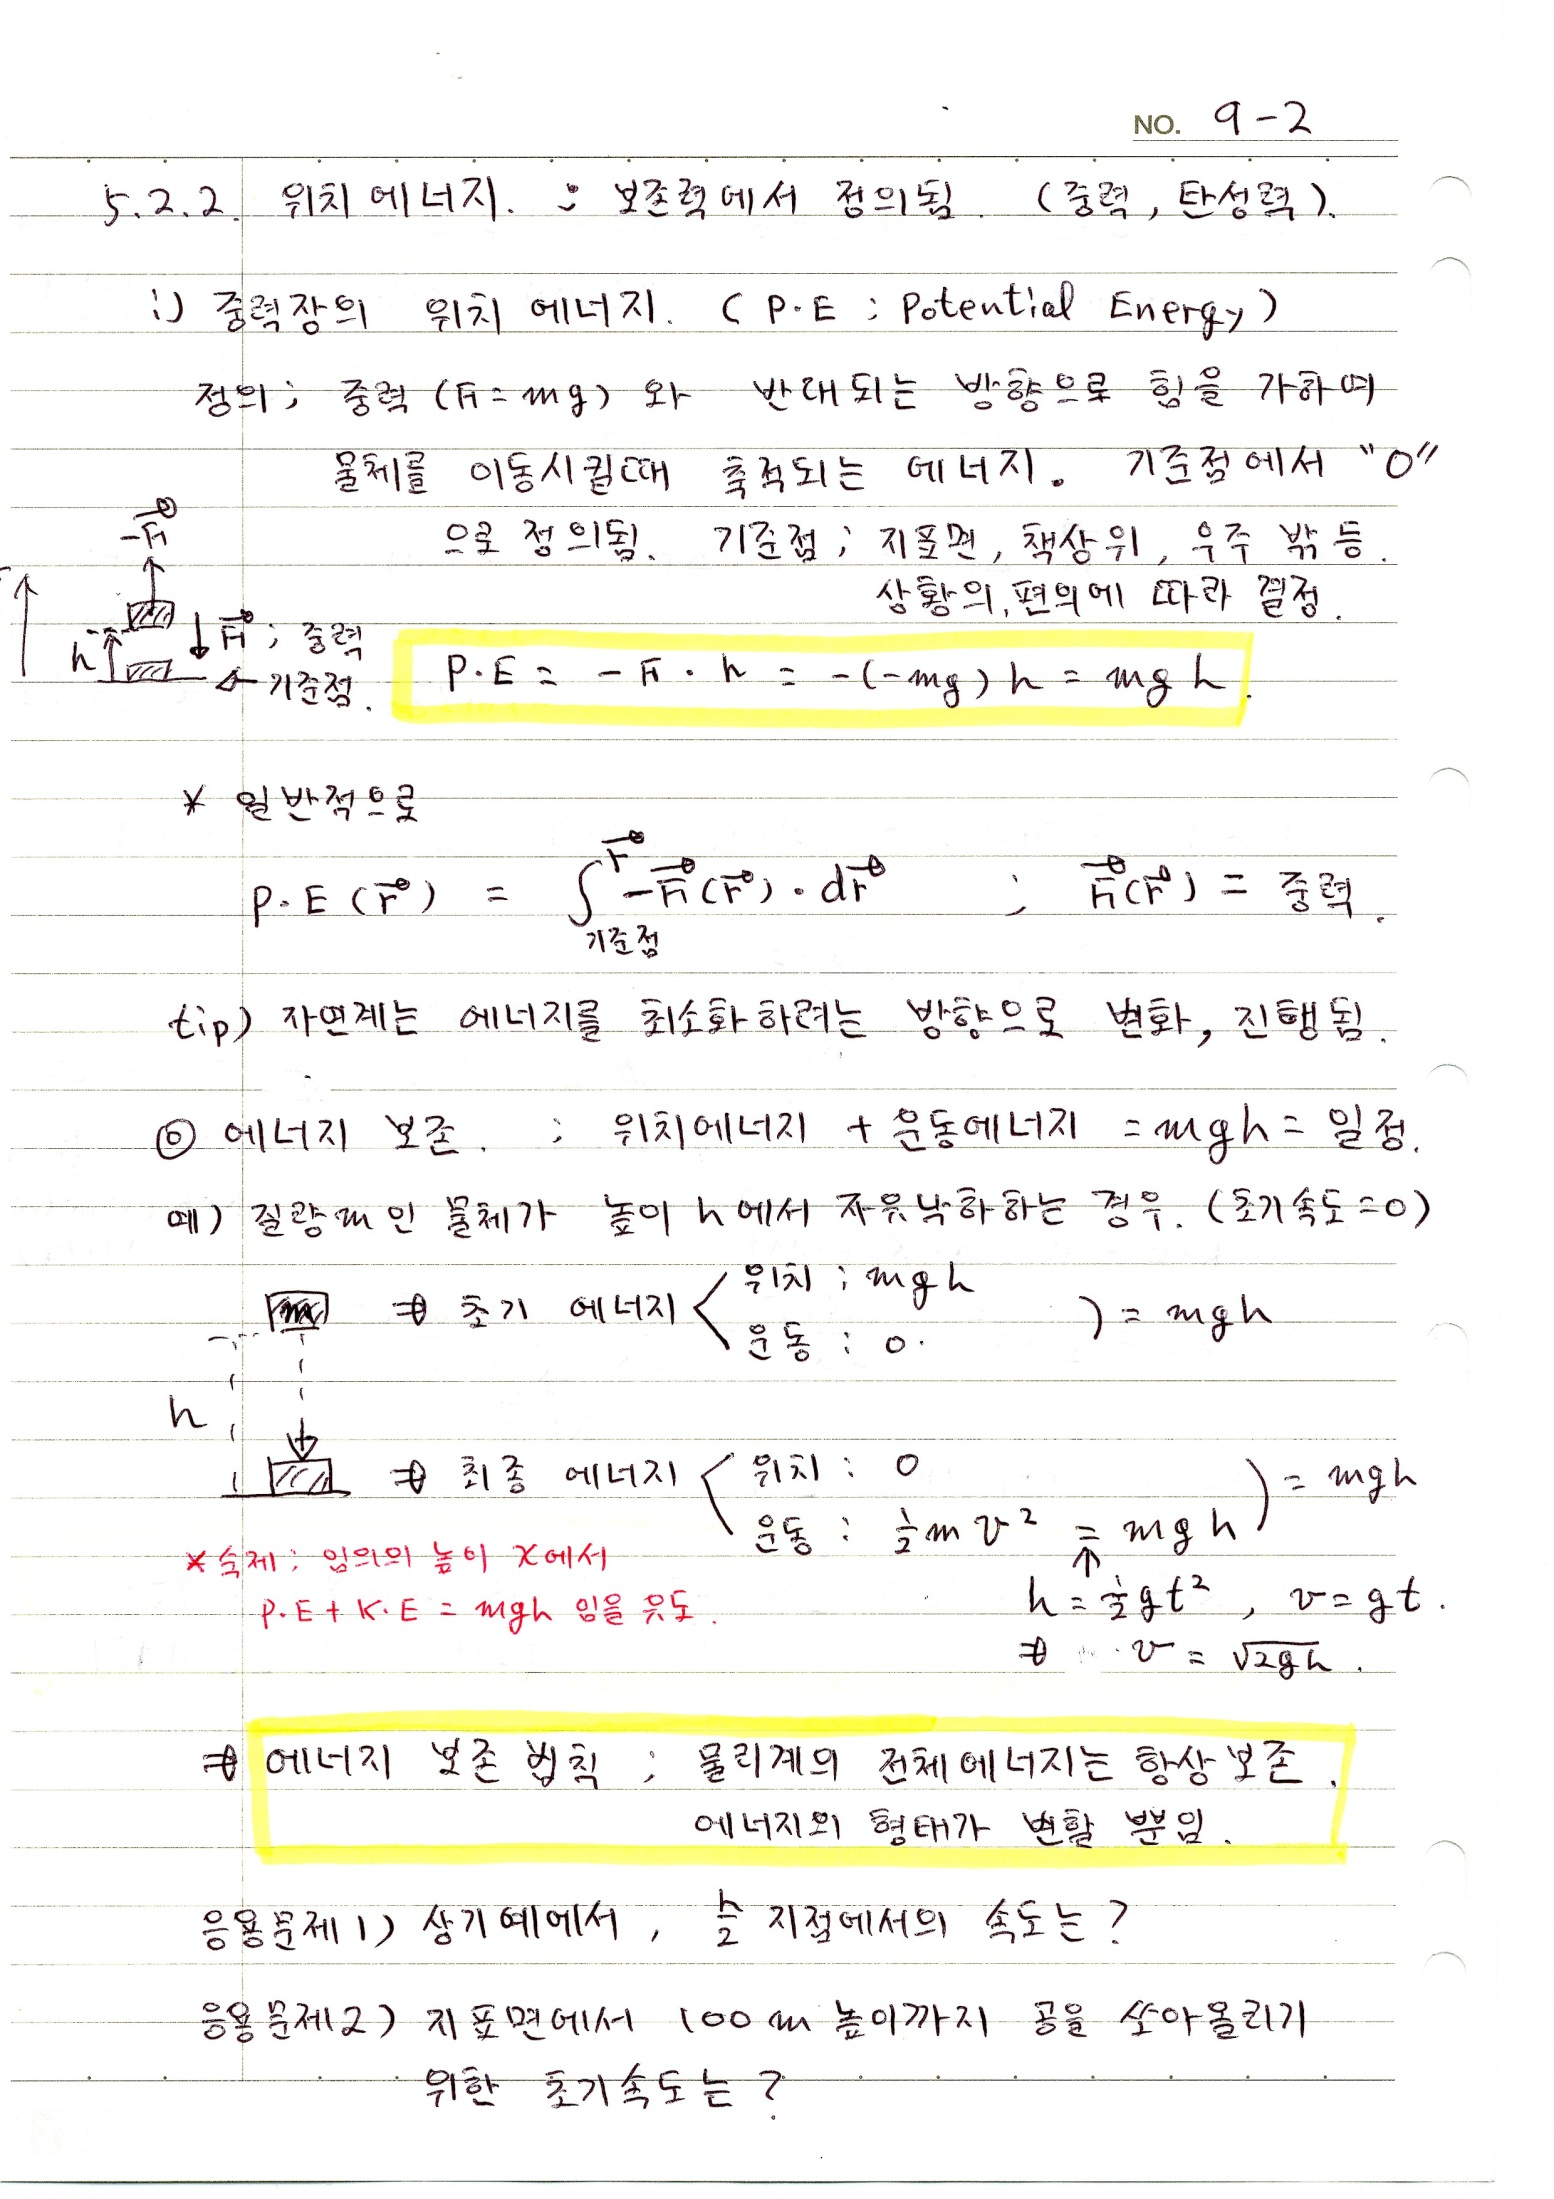 NO. 9-2
5.2.2. 위치에너지. ; 보존력에서 정의됨. (중력, 탄성력).
i) 중력장의 위치 에너지. (P·E ; Potential Energy)
정의; 중력 (F=mg) 와 반대되는 방향으로 힘을 가하여
물체를 이동시킬때 축적되는 에너지. 기준점에서 "0"
으로 정의됨. 기준점; 지표면, 책상위, 우주 밖 등.
상황의, 편의에 따라 결정.
-F⃗
h
F⃗ ; 중력
기준점.
P·E = -F·h = -(-mg)h = mgh.
* 일반적으로
P·E(r⃗) = ∫_기준점^r⃗ -F⃗(r⃗)·dr⃗ ; F⃗(r⃗) = 중력.
tip) 자연계는 에너지를 최소화하려는 방향으로 변화, 진행됨.
◎ 에너지 보존. ; 위치에너지 + 운동에너지 = mgh = 일정.
예) 질량 m인 물체가 높이 h에서 자유낙하하는 경우. (초기속도=0)
m ⇒ 초기 에너지 < 위치 ; mgh
운동 : 0. ) = mgh
h
⇒ 최종 에너지 < 위치 : 0
운동 : ½mv² = mgh ) = mgh
↑
h = ½gt², v = gt.
⇒ v = √2gh.
* 숙제; 임의의 높이 x에서
P.E + K.E = mgh 임을 유도.
⇒ 에너지 보존 법칙 ; 물리계의 전체에너지는 항상 보존.
에너지의 형태가 변할 뿐임.
응용문제1) 상기예에서, h/2 지점에서의 속도는?
응용문제2) 지표면에서 100m 높이까지 공을 쏘아올리기
위한 초기속도는?